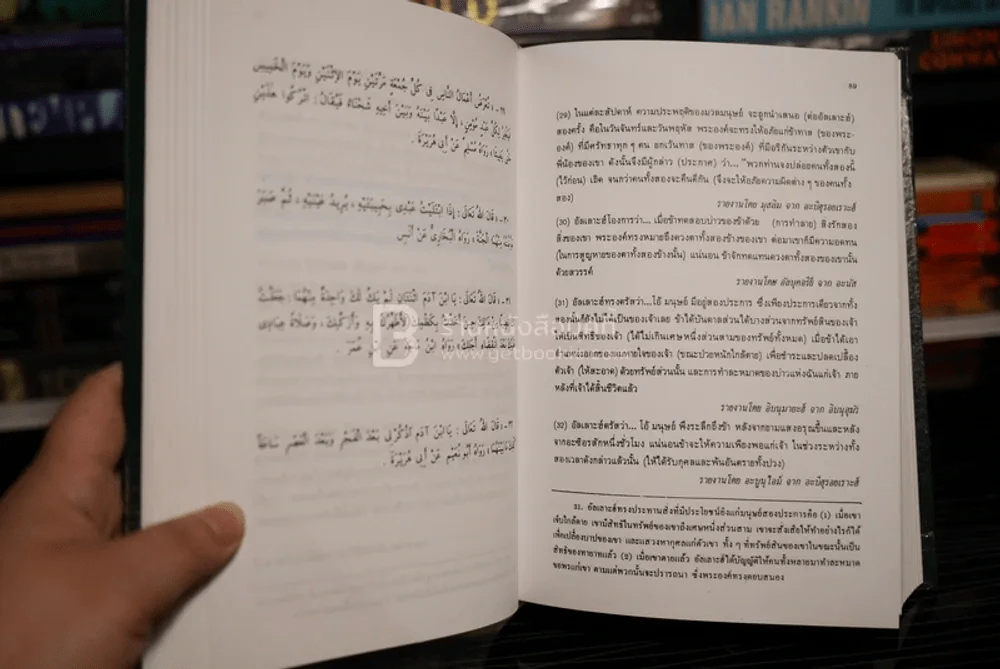 ٢٩ - « تُعْرَضُ أَعْمَالُ النَّاسِ فِي كُلِّ جُمُعَةٍ مَرَّتَيْنِ يَوْمَ الإِثْنَيْنِ وَيَوْمَ الْخَمِيسِ
لِكُلِّ عَبْدٍ مُؤْمِنٍ ، إِلَّا عَبْدًا بَيْنَهُ وَبَيْنَ أَخِيهِ شَحْنَاءُ فَيُقَالُ : اتْرُكُوا هَذَيْنِ
رَوَاهُ مُسْلِمٌ عَنْ أَبِي هُرَيْرَةَ .
٣٠ - « قَالَ اللهُ تَعَالَى : إِذَا ابْتَلَيْتُ عَبْدِي بِحَبِيبَتَيْهِ ، يُرِيدُ عَيْنَيْهِ ، ثُمَّ صَبَرَ
الْجَنَّةَ » رَوَاهُ الْبُخَارِيُّ عَنْ أَنَسٍ
٣١ - « قَالَ اللهُ تَعَالَى : يَا ابْنَ آدَمَ اثْنَتَانِ لَمْ يَكُنْ لَكَ وَاحِدَةٌ مِنْهُمَا : جَعَلْتُ
لِأُطَهِّرَكَ بِهِ وَأُزَكِّيَكَ ، وَصَلَاةُ عِبَادِي
رَوَاهُ ابْنُ عُمَرَ .
٣٢ - « قَالَ اللهُ تَعَالَى : يَا ابْنَ آدَمَ اذْكُرْنِي بَعْدَ الْفَجْرِ وَبَعْدَ الْعَصْرِ سَاعَةً
رَوَاهُ أَبُو نُعَيْمٍ عَنْ أَبِي هُرَيْرَةَ .
59
(29) ในแต่ละสัปดาห์ ความประพฤติของมวลมนุษย์ จะถูกนำเสนอ (ต่ออัลเลาะฮ์)
สองครั้ง คือในวันจันทร์และวันพฤหัส พระองค์จะทรงให้อภัยแก่ข้าทาส (ของพระ-
องค์) ที่มีศรัทธาทุก ๆ คน ยกเว้นทาส (ของพระองค์) ที่มีอริกันระหว่างตัวเขากับ
พี่น้องของเขา ดังนั้นจึงมีผู้กล่าว (ประกาศ) ว่า... "พวกท่านจงปล่อยคนทั้งสองนี้
(ไว้ก่อน) เถิด จนกว่าคนทั้งสองจะคืนดีกัน (จึงจะให้อภัยความผิดต่าง ๆ ของคนทั้ง
สอง)
รายงานโดย มุสลิม จาก อะบีฮุรอยเราะฮ์
(30) อัลเลาะฮ์โองการว่า... เมื่อข้าทดสอบบ่าวของข้าด้วย (การทำลาย) สิ่งรักสอง
สิ่งของเขา พระองค์ทรงหมายถึงดวงตาทั้งสองข้างของเขา ต่อมาเขาก็มีความอดทน
(ในการสูญหายของตาทั้งสองข้างนั้น) แน่นอน ข้าจักทดแทนดวงตาทั้งสองของเขานั้น
ด้วยสวรรค์
รายงานโดย อัลบุคอรีย์ จาก อะนัส
(31) อัลเลาะฮ์ทรงตรัสว่า...โอ้ มนุษย์ มีอยู่สองประการ ซึ่งเพียงประการเดียวจากทั้ง
สองนั้นก็ยังไม่ได้เป็นของเจ้าเลย ข้าได้บันดาลส่วนได้บางส่วนจากทรัพย์สินของเจ้า
ให้เป็นสิทธิ์ของเจ้า (ได้ไม่เกินเศษหนึ่งส่วนสามของทรัพย์ทั้งหมด) เมื่อข้าได้เอา
ของเจ้า (ขณะป่วยหนักใกล้ตาย) เพื่อชำระและปลดเปลื้อง
ตัวเจ้า (ให้สะอาด) ด้วยทรัพย์ส่วนนั้น และการทำละหมาดของบ่าวแห่งฉันแก่เจ้า ภาย
หลังที่เจ้าได้สิ้นชีวิตแล้ว
รายงานโดย อิบนุมายะฮ์ จาก อิบนุอุมัร
(32) อัลเลาะฮ์ตรัสว่า... โอ้ มนุษย์ พึงระลึกถึงข้า หลังจากยามแสงอรุณขึ้นและหลัง
จากอะซิรสักหนึ่งชั่วโมง แน่นอนข้าจะให้ความเพียงพอแก่เจ้า ในช่วงระหว่างทั้ง
สองเวลาดังกล่าวแล้วนั้น (ให้ได้รับกุศลและพ้นอันตรายทั้งปวง)
รายงานโดย อะบูนุไอม์ จาก อะบีฮุรอยเราะฮ์
31. อัลเลาะฮ์ทรงประทานสิ่งที่มีประโยชน์ยิ่งแก่มนุษย์สองประการคือ (1) เมื่อเขา
เจ็บใกล้ตาย เขามีสิทธิในทรัพย์ของเขาถึงเศษหนึ่งส่วนสาม เขาจะสั่งเสียให้ทำอย่างไรก็ได้
เพื่อเปลื้องบาปของเขา และแสวงหากุศลแก่ตัวเขา ทั้ง ๆ ที่ทรัพย์สินของเขาในขณะนั้นเป็น
สิทธิของทายาทแล้ว (2) เมื่อเขาตายแล้ว อัลเลาะฮ์ได้บัญญัติให้คนทั้งหลายมาทำละหมาด
ขอพรแก่เขา ตามแต่พวกนั้นจะปรารถนา ซึ่งพระองค์ทรงตอบสนอง
ร้านหนังสือบุ๊คที
www.getbookie.com
IAN RANKIN